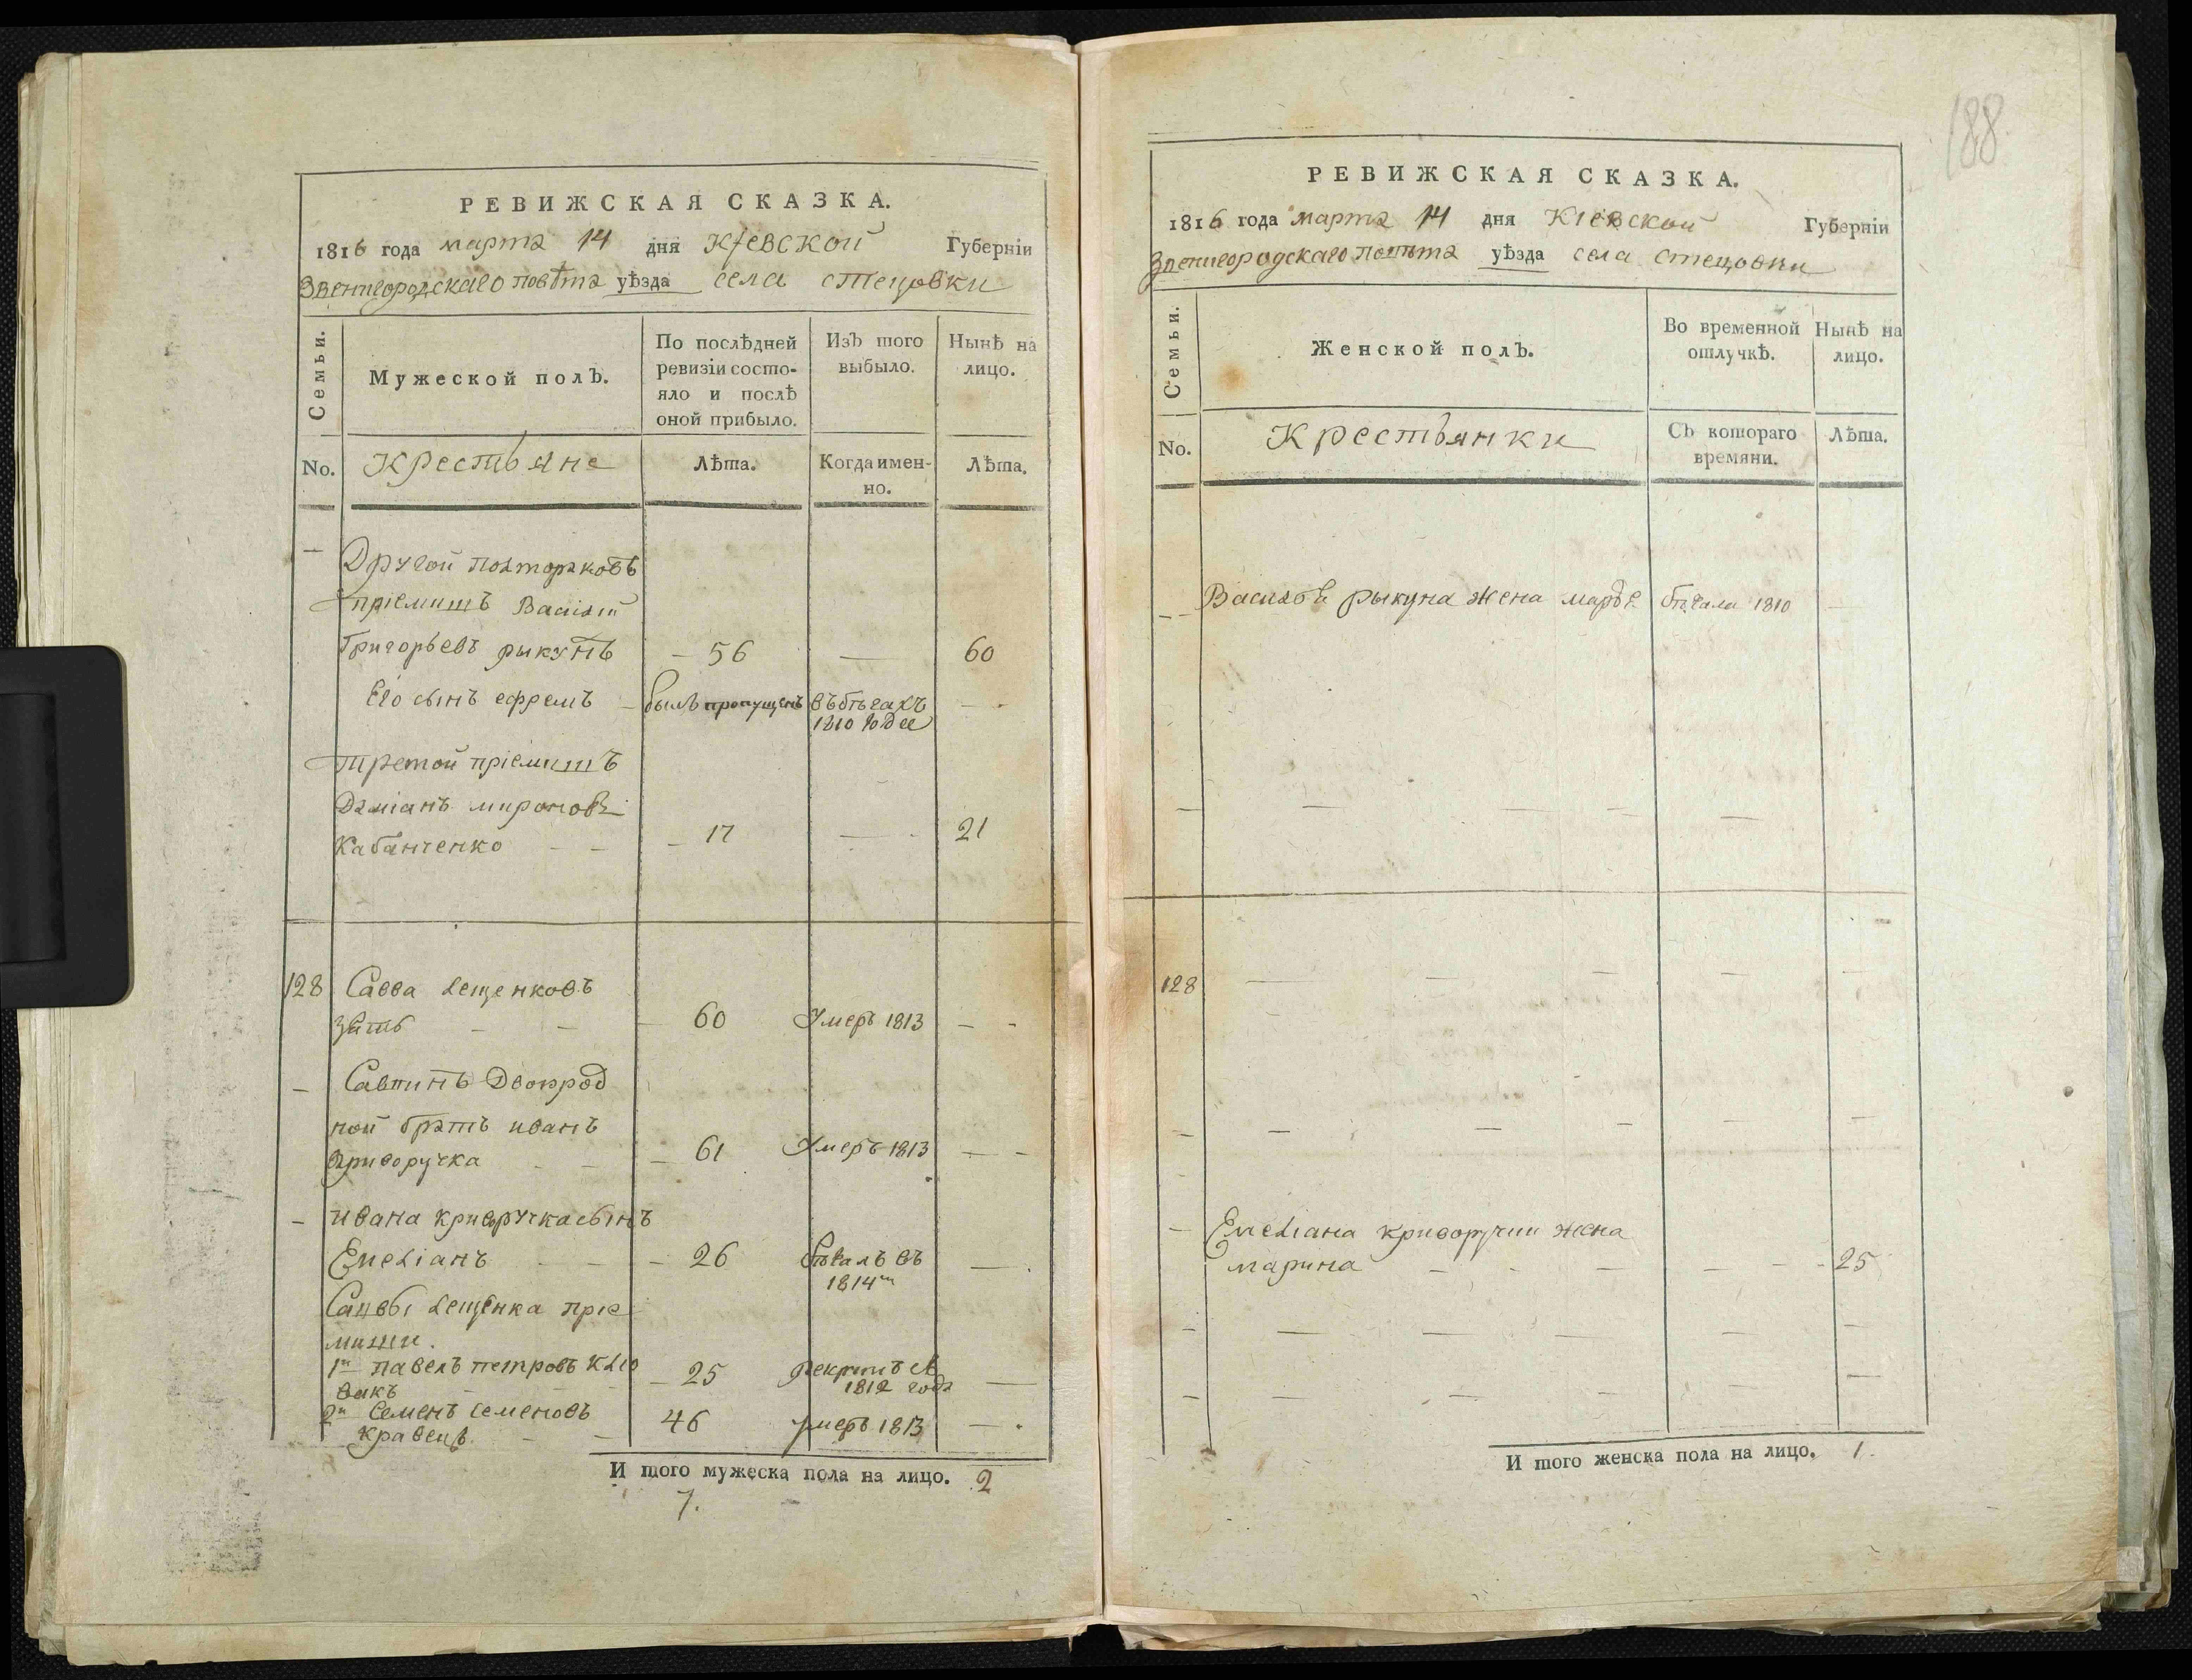 РЕВИЖСКАЯ СКАЗКА.
1816 года марта 14 дня Кіевской Губерніи
Звенигородскаго повѣта уѣзда села стецовки
Семьи.
Мужеской полъ.
По послѣдней
ревизіи состо-
яло и послѣ
оной прибыло.
Изъ того
выбыло.
Нынѣ на
лицо.
No. Крестьяне Лѣта. Когда имен-
но.
Лѣта.
Другой
пріемышъ Василій
Григорьевъ рыкунъ — 56 — 60
Его сынъ ефремъ — былъ пропущенъ въ бѣгахъ
1810 года
третой пріемышъ
Даміанъ мироновъ
Кабанченко — — — 17 — 21
128 Савва Лещенковъ
зять — — — 60 Умеръ 1813 — -
— Савинъ Двоюрод
ной братъ иванъ
Криворучка — — — 61 Умеръ 1813 — -
— ивана криворучка сынъ
Емеліанъ — — — 26 бѣжалъ въ
1814м —
Саввы Лещенка пріе
мыши.
1й павелъ петровъ
— 25 рекрутъ
1812 года —
2й Семенъ Семеновъ
кравецъ — — 46 умеръ 1813 —
И того мужеска пола на лицо. 2
7.
188
РЕВИЖСКАЯ СКАЗКА.
1816 года марта 14 дня Кіевской Губерніи
Звенигородскаго повѣта уѣзда села стецовки
Семьи.
Женской полъ.
Во временной
отлучкѣ.
Нынѣ на
лицо.
No. Крестьянки Съ котораго
времяни.
Лѣта.
— Василья рыкуна жена бѣжала 1810 —
128
— Емеліана криворучки жена
марина — — — — — 25
И того женска пола на лицо. 1.